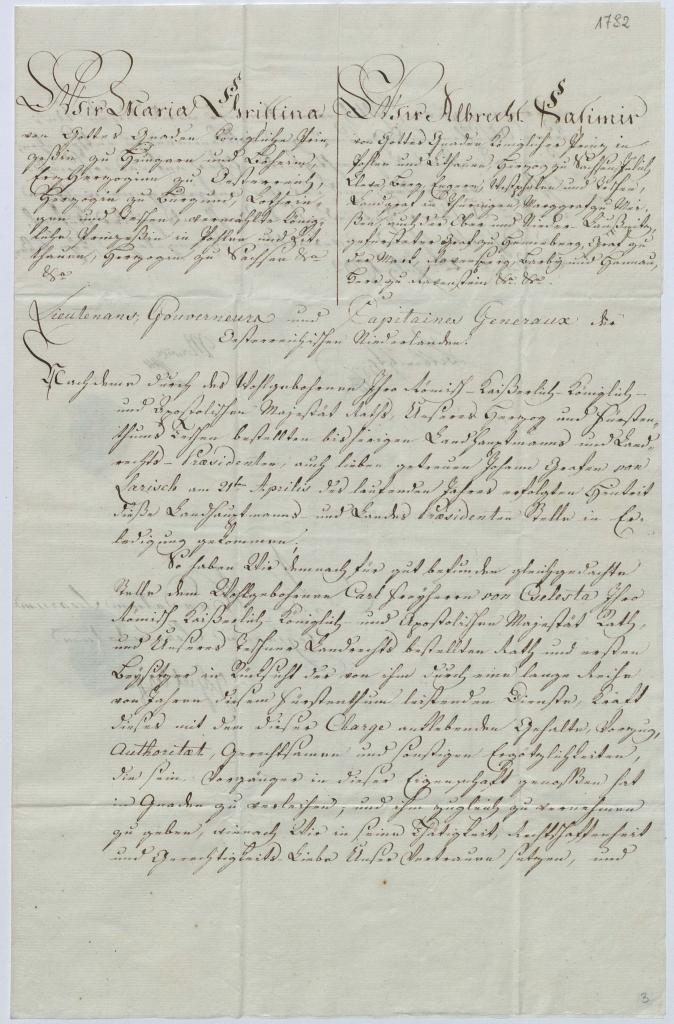 1792
Wir Maria Christina
von Gottes Gnaden Königliche Prin-
zeßin zu Hungarn und Böheim,
Erzherzoginn zu Oesterreich,
Herzogin zu Burgund, Lothrin-
gen und Teschen, vermählte König-
liche Prinzeßin in Pohlen und Lit-
thauen, Herzogin zu Sachsen &ca
&ca
Wir Albrecht Kasimir
von Gottes Gnaden Königlicher Prinz in
Pohlen und Lithauen, Herzog zu Sachsen, Jülich,
Cleve, Berg, Engern, Westphalen und Teschen,
Landgraf in Thüringen, Marggraf zu Mei-
ßen, auch der Ober und Nieder Laußnitz,
gefürsteter Graf zu Henneberg, Graf zu
der Mark, Ravensberg, Barby und Hannau,
Herr zu Ravenstein &c. &c.
Lieutenans, Gouverneurs und Capitaines Generaux der
Oesterreichischen Niederlanden.
Nachdeme durch des Wohlgebohrnen Ihro Römisch-Kaißerlich-Königlich-
und Apostolischen Majestät Raths, Unseres Herzog und Fürsten-
thums Teschen bestellten bisherigen Landhauptmanns und Land-
rechts-Præsidenten, auch lieben getreuen Johann Grafen von
Larisch am 21ten Aprilis des laufenden Jahres erfolgten Hintrit
dieße Landhauptmanns und Landes Præsidenten Stelle in Er-
ledigung gekommen;
So haben Wir demnach für gut befunden gleichgedachte
Stelle dem Wohlgebohrnen Carl Freyherrn von Cselesta Ihro
Römisch-Kaißerlich-Königlich und Apostolischen Majestät Rath,
und Unseres Teschner Landrechts bestellten Rath und ersten
Beysitzer in Rücksicht der von ihm durch eine lange Reihe
von Jahren diesem Fürstenthum leistenden Dienste, Kraft
dieses mit dem dieser Charge anklebenden Gehalte, Vorzug,
Authoritæt, Gerechtsamen und sonstigen Ergötzlichkeiten,
die sein Vorgänger in dieser Eigenschaft genossen hat
in Gnaden zu verleihen, und ihm zugleich zu vernehmen
zu geben, wienach Wir in seine Thätigkeit, Rechtschaffenheit
und Gerechtigkeits Liebe Unser Vertrauen setzen, und
3